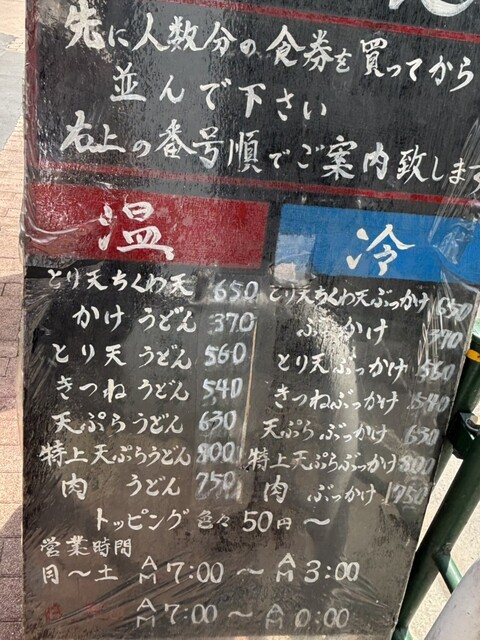 先に人数分の食券を買ってから
並んで下さい
右上の番号順でご案内致します
温
とり天ちくわ天 650
かけうどん 370
とり天うどん 560
きつねうどん 540
天ぷらうどん 630
特上天ぷらうどん 800
肉うどん 750
冷
とり天ちくわ天ぶっかけ 650
ぶっかけ 390
とり天ぶっかけ 560
きつねぶっかけ 540
天ぷらぶっかけ 630
特上天ぷらぶっかけ 800
肉ぶっかけ 750
トッピング色々50円〜
営業時間
月〜土 AM7:00〜AM3:00
AM7:00〜A 0:00